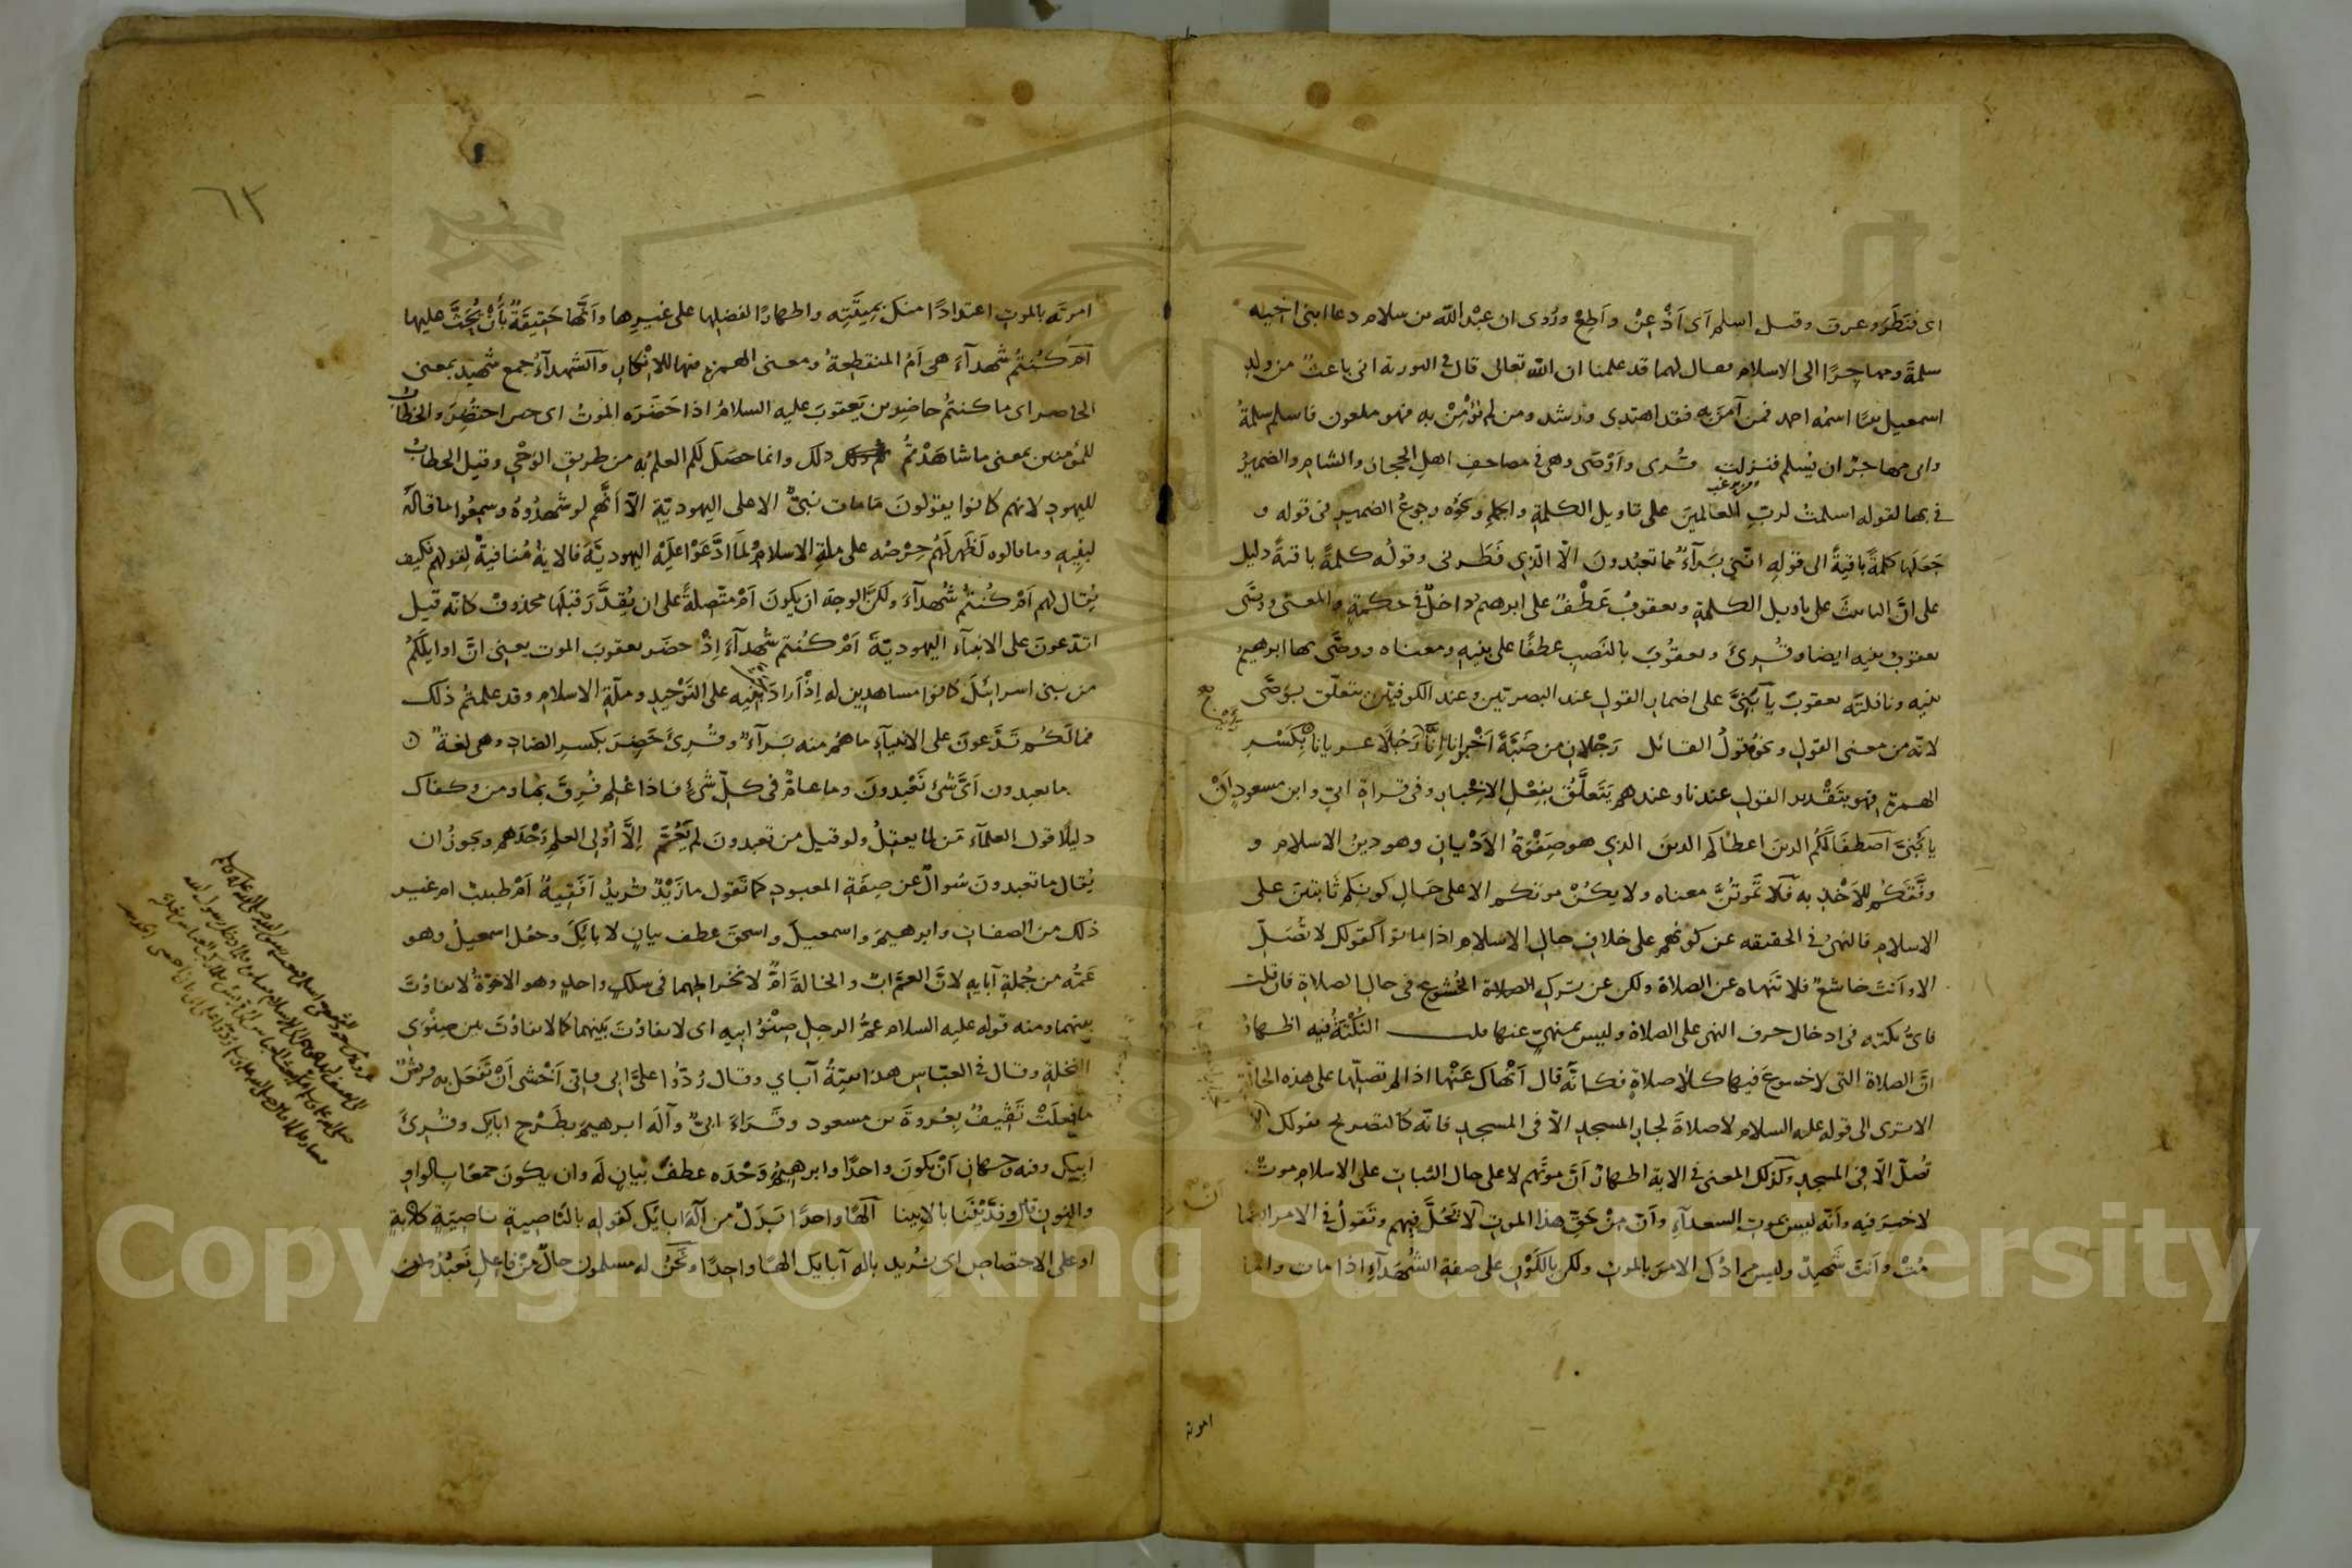 اى فنَظَرَ وعرف وقيل اسلم اَى اَذْعِنْ واَطِعْ ورُوى ان عبْد اللّه بن سلام دعا ابنى اخيه
سلمةَ ومهاجِرًا الى الاسلام فقال لهما قد علمنا ان اللّه تعالى قال فى التورية انى باعثٌ من ولد
اسمعيل نبيًا اسمُه احمد فمن آمنَ به فقد اهتدى ورشد ومن لم يُؤْمِنْ به فهو ملعون فاسلم سلمةُ
وابى مهاجرٌ ان يُسلم فنزلت وقُرى واَوْصَى وهى فى مصاحفِ اهلِ الحجاز والشام والضميرُ
فى بها لقوله اسلمتُ لربّ العالمين على تاويل الكلمةِ والجملةِ ونحوُه رجوعُ الضميرِ فى قوله و
جَعَلَها كلمةً باقيةً الى قوله انّنى بَرَآءٌ مما تعبُدونَ الّا الّذى فَطَرنى وقولُه كلمةً باقيةً دليل
على انّ التانيثَ على تاويل الكلمةِ ويعقوبُ عَطْفٌ على ابرهيم داخلٌ فى حكمه والمعنى ووصَّى
يعقوبُ بنيه ايضا وقُرِئَ ويعقوبَ بالنَصب عطفًا على بنيهِ ومعناه ووصَّى بها ابرهيمُ
بنيه ونافلتَه يعقوبَ يا بَنِىَّ على اضمار القول عند البصريّين وعند الكوفيّين يتعلّق بوَصَّى
لانّه من معنى القول ونحوُه قولُ القائل رَجْلانِ من ضَبَّةَ اَخْبَرانا اِنّا رَاَيْنا رَجُلًا عريانا بِكَسْرِ
الهمزةِ فهو بتَقْدير القولِ عندنا وعندهم يَتَعلَّقُ بفِعْلِ الاِخْبارِ وفى قراءةِ ابىّ وابن مسعودٍ اَنْ
يا بَنِىَّ اصطفى لَكُمُ الدينَ اعطاكم الدينَ الذى هو صَِفْوَةُ الاَدْيانِ وهو دينُ الاسلام و
وفَّقَكُم للاَخْذِ به فَلا تَمُوتُنَّ معناه ولا يكُنْ موتكم الا على حَالِ كونكم ثابتين على
الاسلامِ فالنهىُ فى الحقيقه عن كونهم على خلافِ حالِ الاسلامِ اذا ماتوا كقولك لا تُصَلِّ
الا وانتَ خاشعٌ فلا تَنهاه عن الصلاة ولكن عن تَركِ الخُشوعِ فى حالِ الصلاةِ فان قلت
فاىُّ نكتةٍ فى ادخال حرف النهى على الصلاة وليس بمنهىٍّ عنها قلت النُكْتَةُ فيه اظهارُ
انّ الصلاة التى لا خشوع فيها كلا صلاةٍ فكانّه قال اَنْهاك عَنْها اذا لم تصلِّها على هذه الحالة
الا ترى الى قوله عليه السلام لا صلاةَ لجارِ المسجدِ الّا فى المسجدِ فانّه كالتصريح بقولك لا
تُصلِّ الّا فى المسجدِ وكذلك المعنى فى الاية اظهارُ اَنّ موتَهم لا على حال الثبات على الاسلام موتٌ
لا خيرَ فيه وانّه ليس بموتِ السعدآءِ وانّ مِنْ حَقِّ هذا الموتِ اَنْ لا يَحُلَّ فيهم وتَقولُ فى الامر ايضًا
مُتْ وانتَ شَهيدٌ وليس مرادُك الامرَ بالموتِ ولكن بالكَوْنِ على صفةِ الشُهَدآءِ اذا مات وانّما
امرته
٦٢
امرتَه بالموتِ اعتدادًا منك بمِيتَتِه واظهارًا لفضلِها على غيرِها واَنَّها حَقيقةٌ بأَنْ يُحَثَّ عليها
اَم كُنتُم شُهدآءَ هى اَم المنقطِعةُ ومعنى الهمزة فيها للاِنْكار والشُهدآءُ جمع شهيد بمعنى
الحاضر اى ما كنتُم حاضِرين يَعقوبَ عليه السلامُ اذ حَضَرَه الموتُ اى حين احتُضِرَ والخطابُ
للمؤمنين بمعنى ما شاهَدْتمُ ذلك وانما حصَلَ لكم العلمُ به من طريق الوَحْىِ وقيل الخطابُ
لليهودِ لانهم كانوا يقولونَ ما مات نبىٌّ الا على اليهوديّةِ الّا اَنَّهم لو شهدُوهُ وسمِعُوا ما قالَه
لبنيه وما قالوه لَظَهر لَهُم حِرْصُه على ملةِ الاسلامِ ولَما ادَّعَوْا عليْه اليهوديّةَ فالايةُ مُنافيةٌ لقولهم فكيف
يُقال لهم اَمْ كُنتُم شُهدآءَ ولكنّ الوجهَ ان يكونَ اَمْ متّصلةً على ان يُقدَّرَ قبْلَها محذوفٌ كانّه قيل
اتدّعونَ على الانبيآءِ اليهوديّةَ اَمْ كُنتم شُهدآءَ اِذْ حضَر يعقوبَ الموت يعنى انّ اوايلَكُم
من بنى اسرائيلَ كانوا مشاهدين له اِذْ اَرادَ بَنيه على التَوْحيد وملّةِ الاسلامِ وقد علمتُم ذلك
فما لَكُم تَدَّعونَ على الانبيآءِ ما هُم منه بَرَآءٌ وقُرِئَ حَضِرَ بكسرِ الضادِ وهى لغةٌ
ما تعبدون اَىَّ شئٍ تَعْبدونَ وما عامٌّ فى كلّ شئٍ فاذا عُلِم فُرِقَ بما ومن وكفاك
دليلًا قول العلمآء مَن لما يعقِلُ ولو قيل من تعبدونَ لم يَعُمَّ اِلّا اُولى العلمِ وَحْدَهم ويجوزُ ان
يُقال ما تعبدونَ سُوالٌ عن صِفَةِ المعبودِ كما تَقول ما زَيْدٌ تُريدُ اَفَقِيهٌ اَمْ طبيبٌ ام غير
ذلك من الصفات وابرهيمَ واسمعيلَ واسحقَ عطف بيانٍ لابايكَ وجُعل اسمعيلُ وهو
عَمّه من جُملةِ آبايهِ لانّ العمّ ابٌ والخالةَ امٌّ لانخراطِهما فى سلكٍ واحدٍ وهو الاخوّةُ لا تفاوُتَ
بينهما ومنه قوله عليه السلام عمُّ الرجلِ صِنْوُ ابيه اى لا تفاوُتَ بَينهما كما لا تفاوُتَ بين صِنْوَىِ
النخلةِ وقال فى العبّاسِ هذا بقيّةُ آباي وقال رُدّوا علىَّ ابى فانّى اَخْشى اَنْ تَفعَل به قريشٌ
ما فعلَتْ ثَقيفٌ بعُروةَ بن مسعود وقَراءَ ابىٌّ وآلَه ابرهيمَ بطَرْحِ ابايك وقُرِئَ
ابيكَ وفيه وجهانِ اَنْ يكونَ واحدًا وابرهيمُ وَحْدَه عطفُ بيانٍ له وان يكون جمعًا بالواوِ
والنونِ قال وفدَّيْنَنا بالابينا آلَهًا واحدًا بَدَلٌ من آله ابايك كقوله بالنّاصيةِ ناصيةٍ كاذبةٍ
او على الاختصاصِ اى نُريد باله آبايك الهًا واحدًا ونَحْنُ له مسلمون حالٌ مِنْ فاعلِ نَعْبُدُ
Copyright © King Saud University